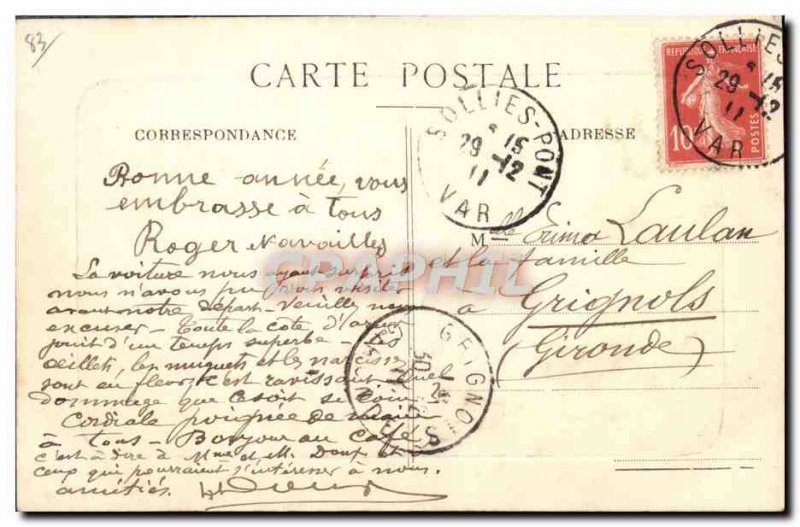 83
CARTE POSTALE
CORRESPONDANCE
ADRESSE
REPUBLIQUE FRANÇAISE
10
POSTES
SOLLIES-PONT
15
29 -12
11
VAR
SOLLIES
15
29 -12
11
VAR
Bonne année, vous
embrasse à tous
Roger Navailles
La voiture nous ayant surpris
nous n'avons pu vous visiter
avant notre départ - Veuillez nous
excuser - Toute la côte d'azur
jouit d'un temps superbe - Les
œillets, les muguets et les narcisses
sont au fleurs c'est ravissant quel
dommage que ce soit si loin
Cordiale poignée de main
à tous - Bonjour au café
c'est à dire à Mme et M.
ceux qui pourraient s'intéresser à nous.
amitiés.
Mlle Laulan
et la famille
à Grignols
(Gironde)
GRIGNOLS
30
GIRONDE
CPAPHIL